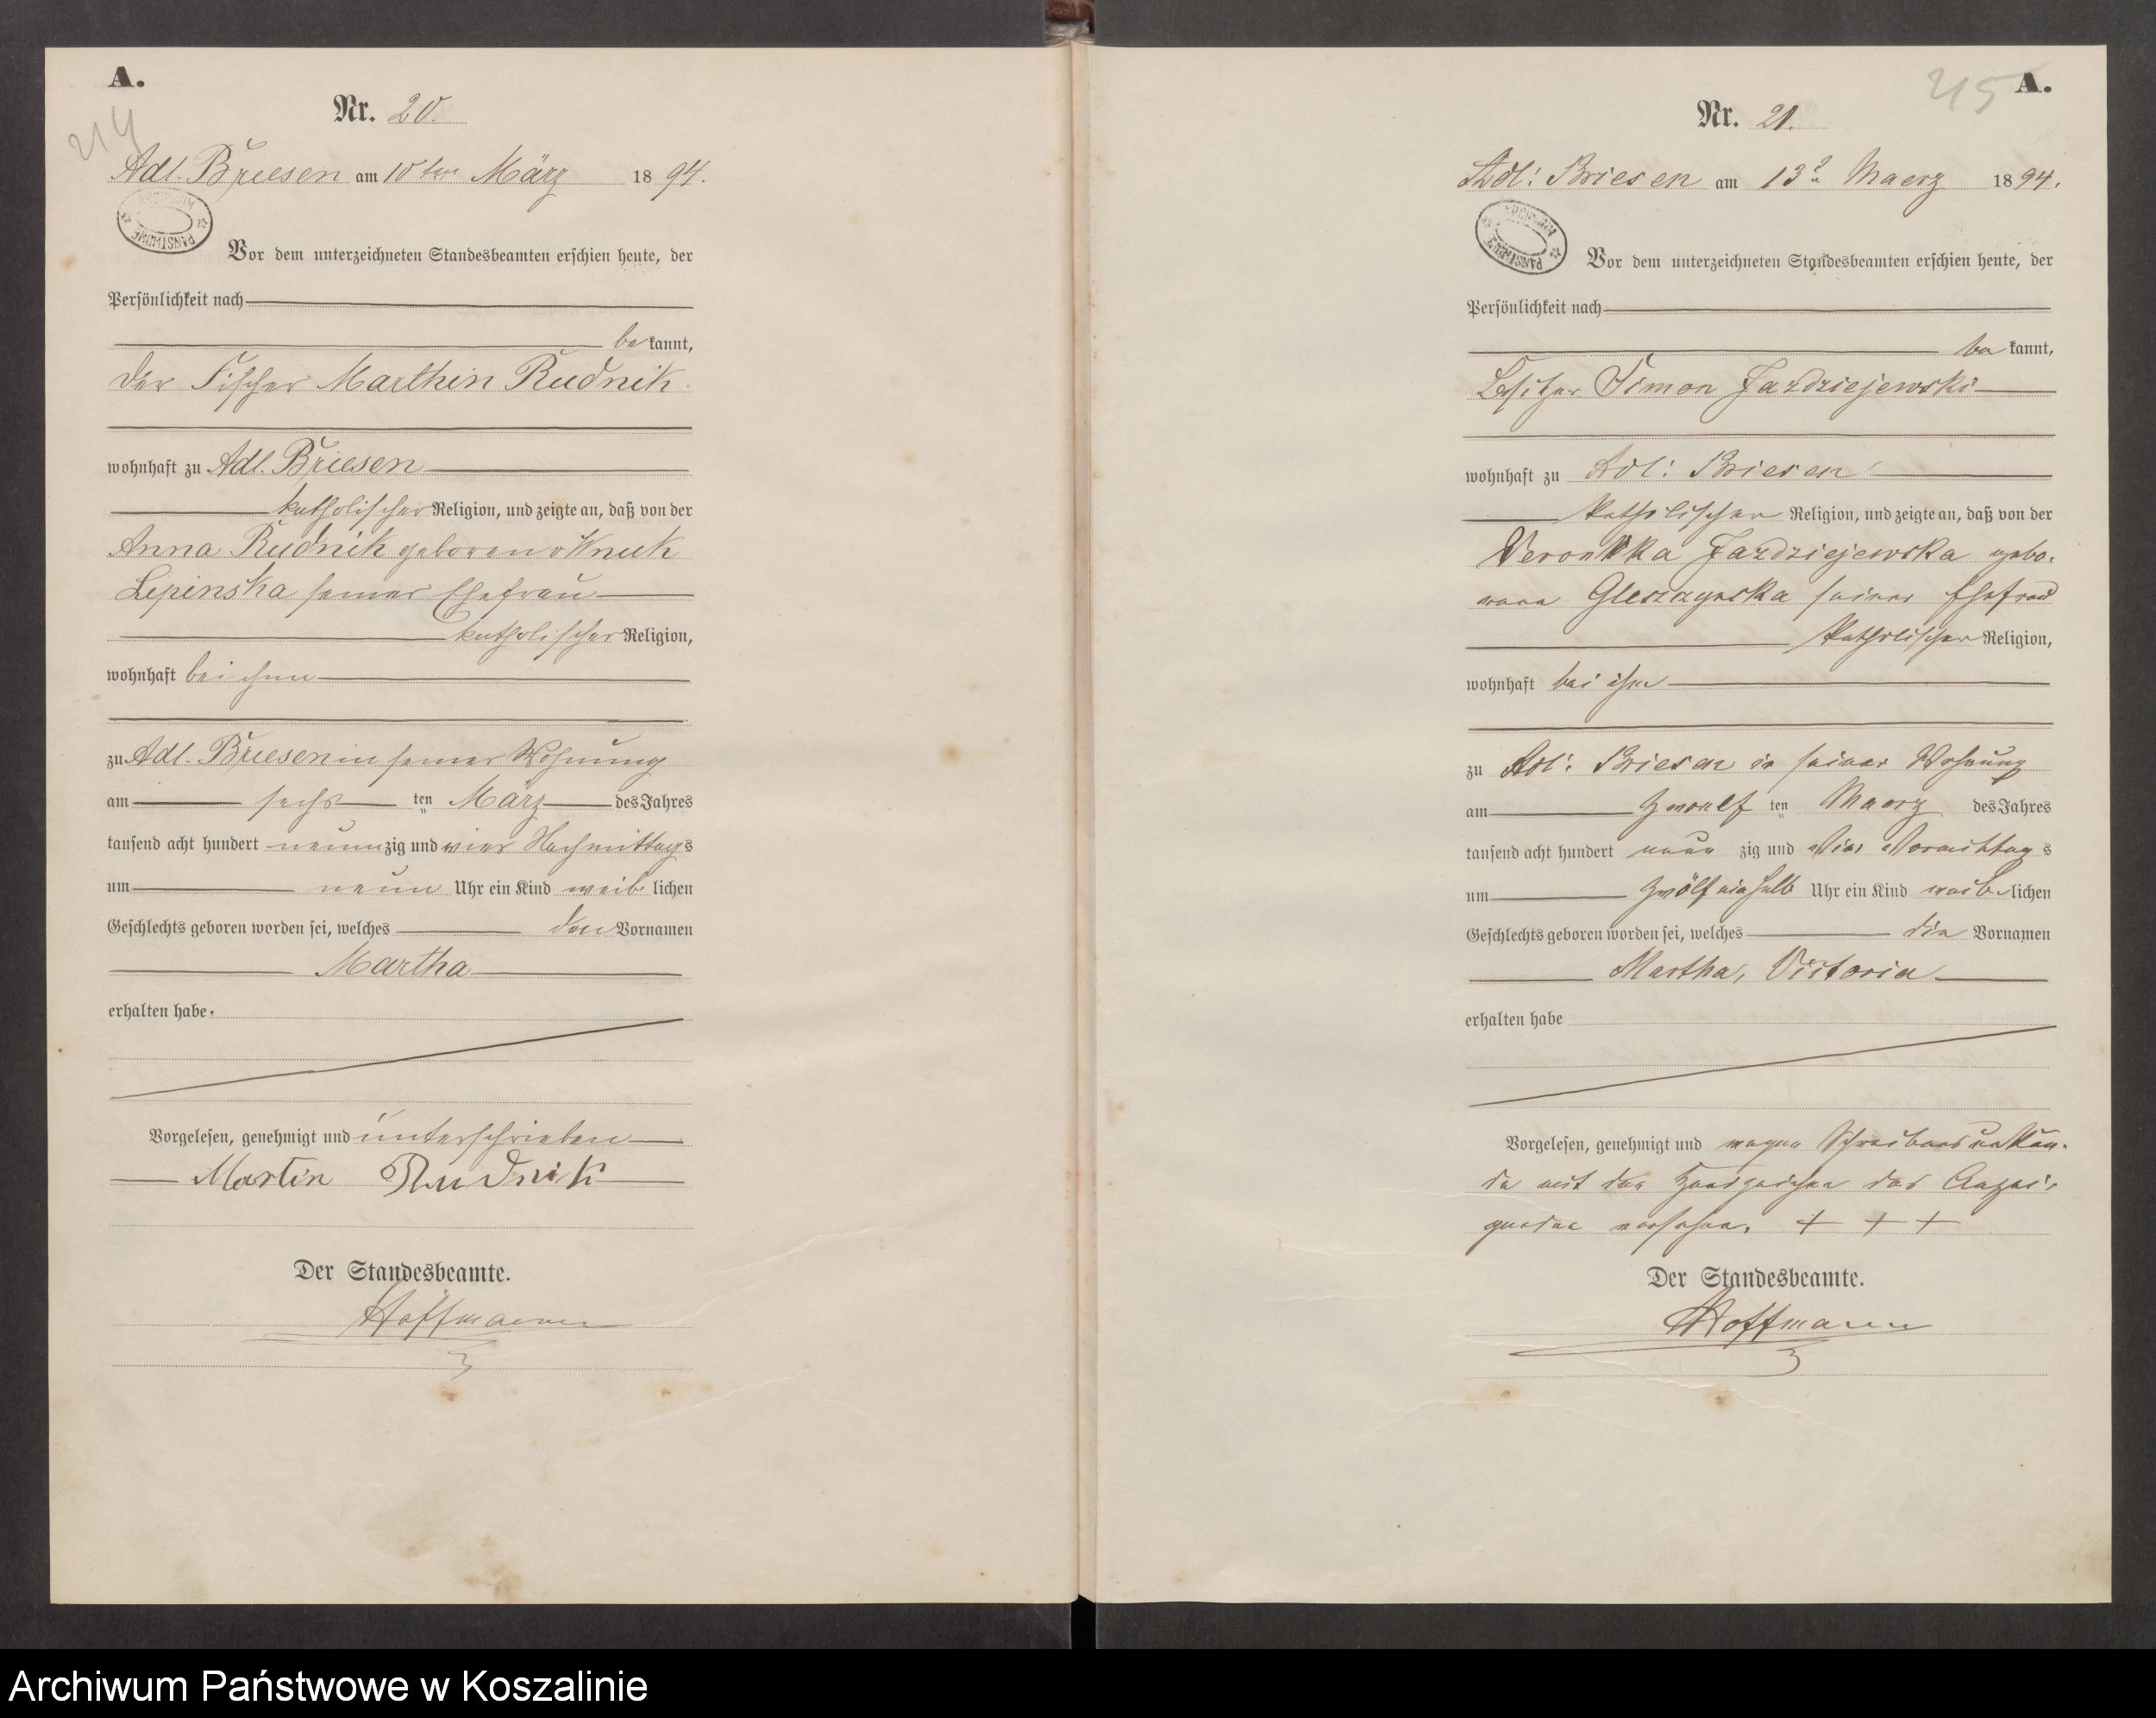 A.
Nr. 20.
214
Adl. Briesen am 10ten März 1894.
Vor dem unterzeichneten Standesbeamten erschien heute, der
Persönlichkeit nach
bekannt,
der Fischer Marthin Rudnik.
wohnhaft zu Adl. Briesen
katholischer Religion, und zeigte an, daß von der
Anna Rudnik geboren v
Lepinska seiner Ehefrau
katholischer Religion,
wohnhaft bei ihm
zu Adl. Briesen in seiner Wohnung
am sechs ten März des Jahres
tausend acht hundert neunzig und vier Nachmittags
um neun Uhr ein Kind weiblichen
Geschlechts geboren worden sei, welches den Vornamen
Martha
erhalten habe.
Vorgelesen, genehmigt und unterschrieben
Martin Rudnik
Der Standesbeamte.
Hoffmann
215 A.
Nr. 21.
Adl: Briesen am 13 Maerz 1894.
Vor dem unterzeichneten Standesbeamten erschien heute, der
Persönlichkeit nach
bekannt,
Besitzer Simon Jazdziejewski
wohnhaft zu Adl: Briesen
katholischer Religion, und zeigte an, daß von der
Veronika Jazdziejewska gebo-
rene Gleszzynska seiner Ehefrau
katholischer Religion,
wohnhaft bei ihm
zu Adl: Briesen in seiner Wohnung
am zwoelf ten Maerz des Jahres
tausend acht hundert neun zig und vier Vormittags
um zwölf einhalb Uhr ein Kind weiblichen
Geschlechts geboren worden sei, welches die Vornamen
Martha, Victoria
erhalten habe
Vorgelesen, genehmigt und wegen Schreibensunkun-
de mit den Handzeichen des Anzei-
genden versehen. + + +
Der Standesbeamte.
Hoffmann
Archiwum Państwowe w Koszalinie